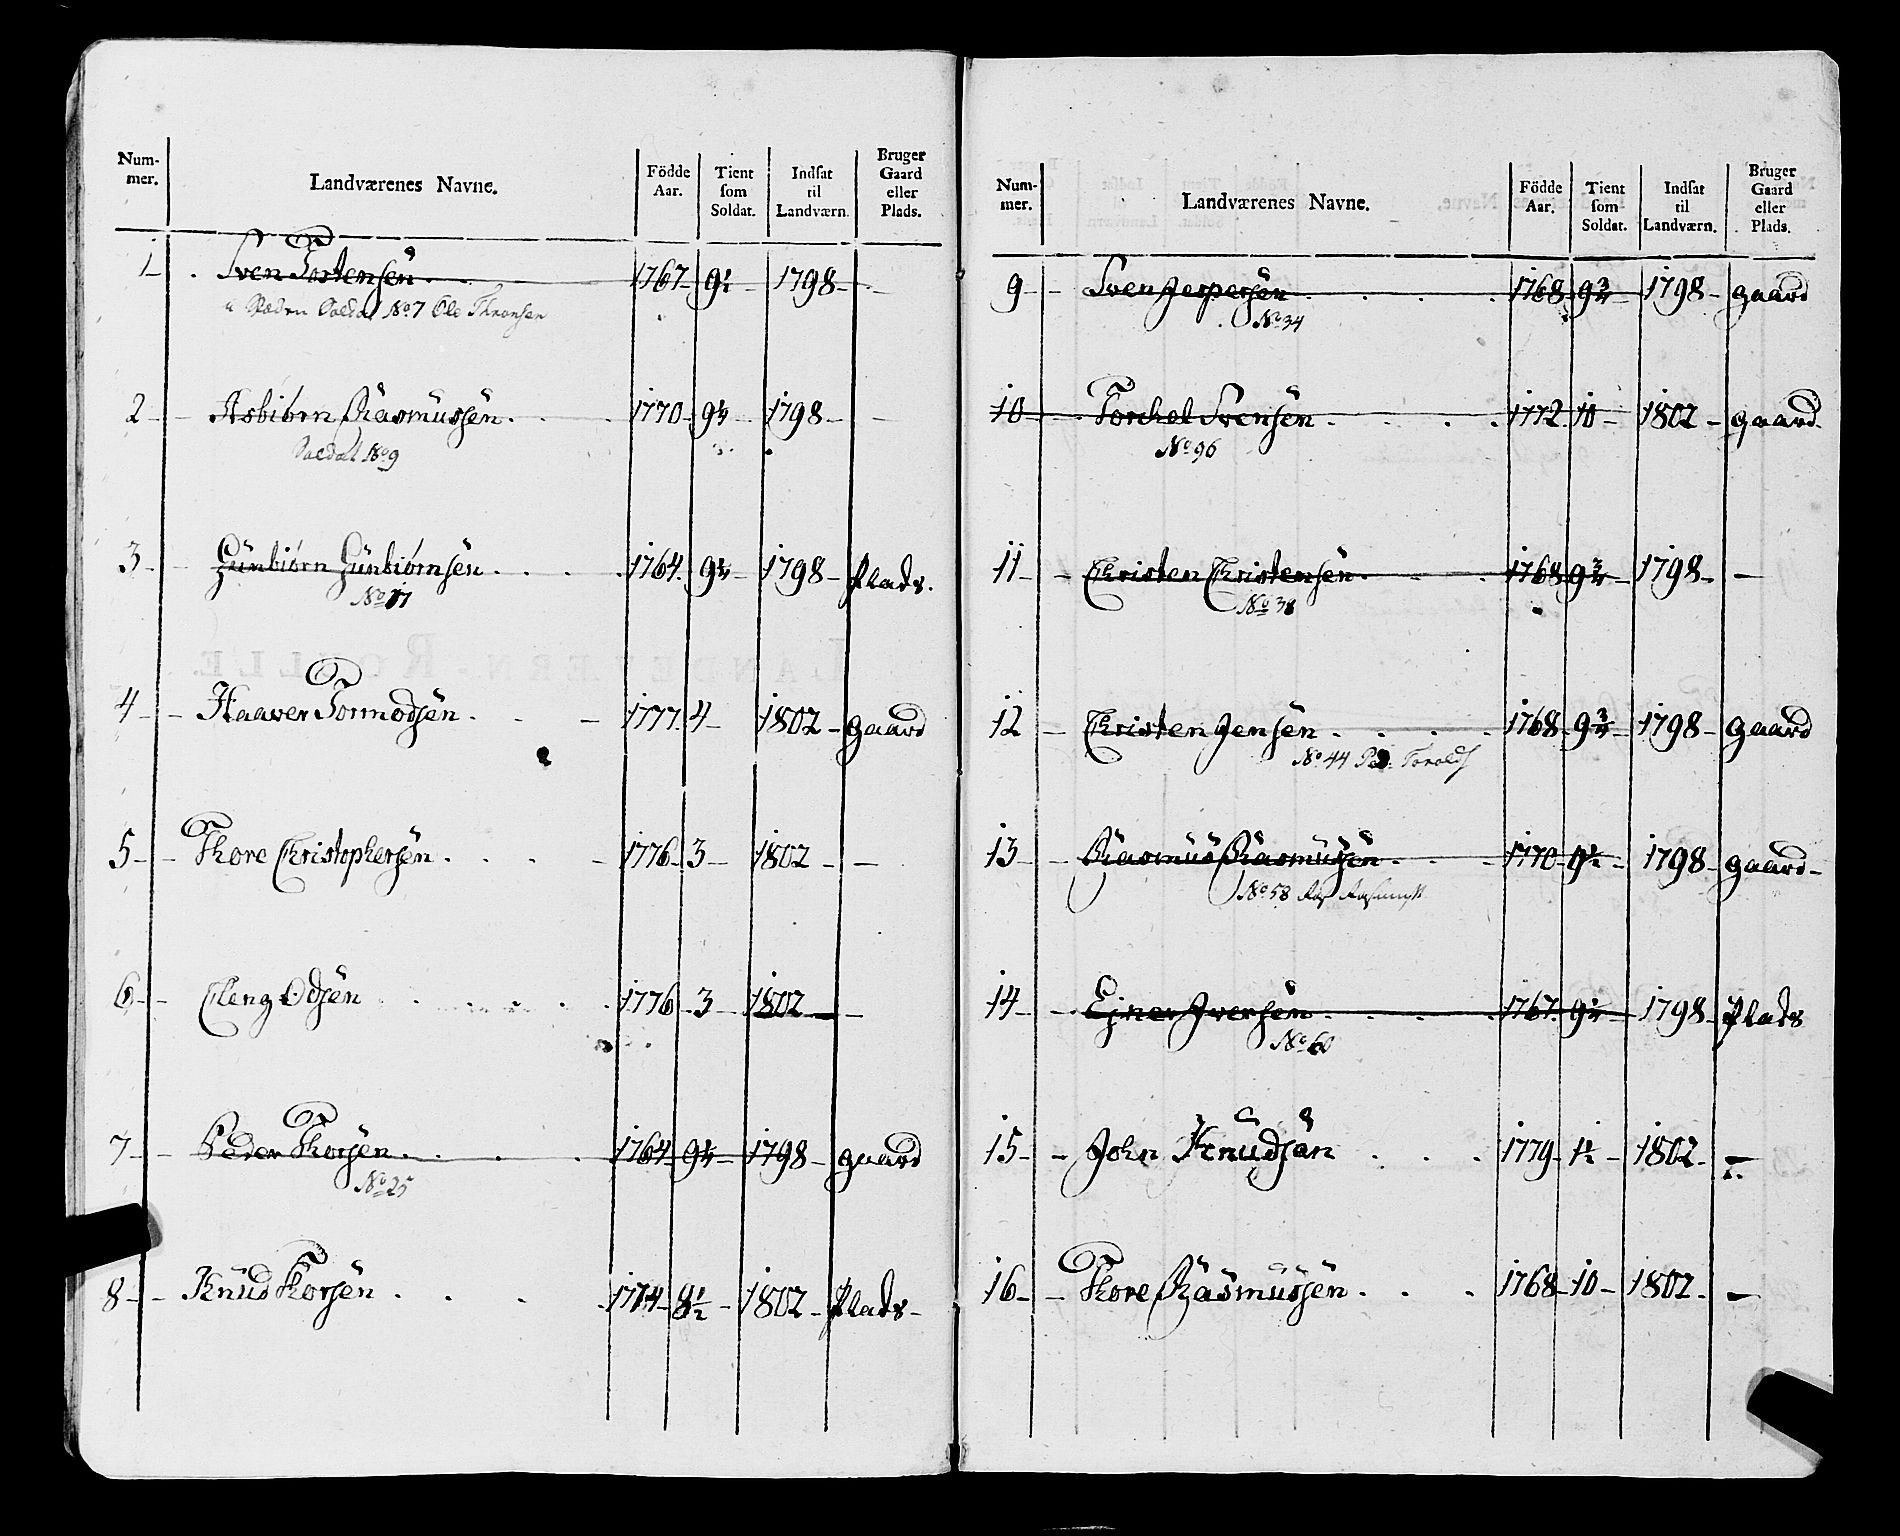 Num-mer. Landværenes Navne. Födde Aar. Tient som Soldat. Indsat til Landværn. Bruger Gaard eller Plads.
1 - Sven Tostensen 1767 - 9½ - 1798 - -
Soldat No 7 Ole Thronsen
2 - - Asbiörn Rasmussen 1770 - 9¼ - 1798 - -
Soldat No 9
3 - - Gunbiörn Gunbiörnsen 1764 - 9¼ - 1798 - Plads.
No 17
4 - - Haaver Tormodsen 1777 - 4 - 1802 - gaard
5 - - Thore Christophersen 1776 - 3 - 1802 - -
6 - - Eleng Odsen 1776 - 3 - 1802 - -
7 - - Peder Thorsen 1764 - 9¼ - 1798 - gaard
No 25
8 - - Knud Thorsen 1774 - 8½ - 1802 - Plads -
Num-mer. Landværenes Navne. Födde Aar. Tient som Soldat. Indsat til Landværn. Bruger Gaard eller Plads.
9 - - Sven Jespersen 1768 - 9¾ - 1798 - gaard
No 34
10 - Torchel Svensen 1772 - 10 - 1802 - gaard.
No 96
11 - - Christen Christensen 1768 - 9¾ - 1798 - -
No 38
12 - Christen Jensen 1768 - 9¾ - 1798 - gaard
No 44
13 - - Rasmus Rasmussen 1770 - 9½ - 1798 - gaard -
No 58 Ras Rasmuss
14 - - Ejner Iversen 1767 - 9¼ - 1798 - Plads
No 60
15 - - John Knudsen 1779 - 1½ - 1802 - -
16 - - Thore Rasmussen 1768 - 10 - 1802 - -